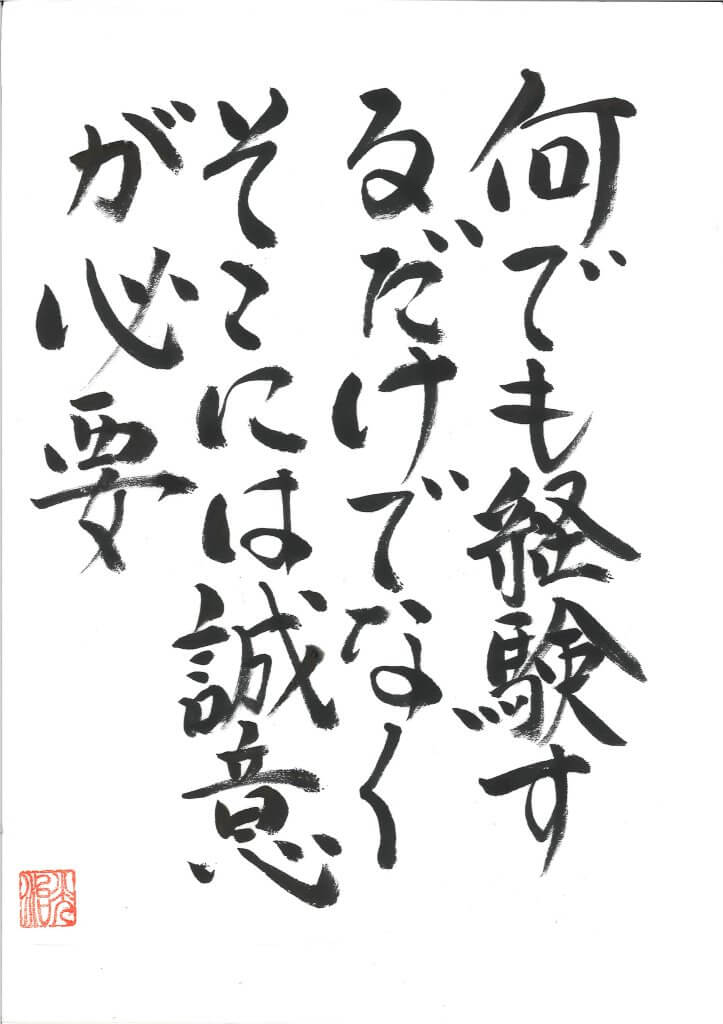 何でも経験す
るだけでなく
そこには誠意
が必要